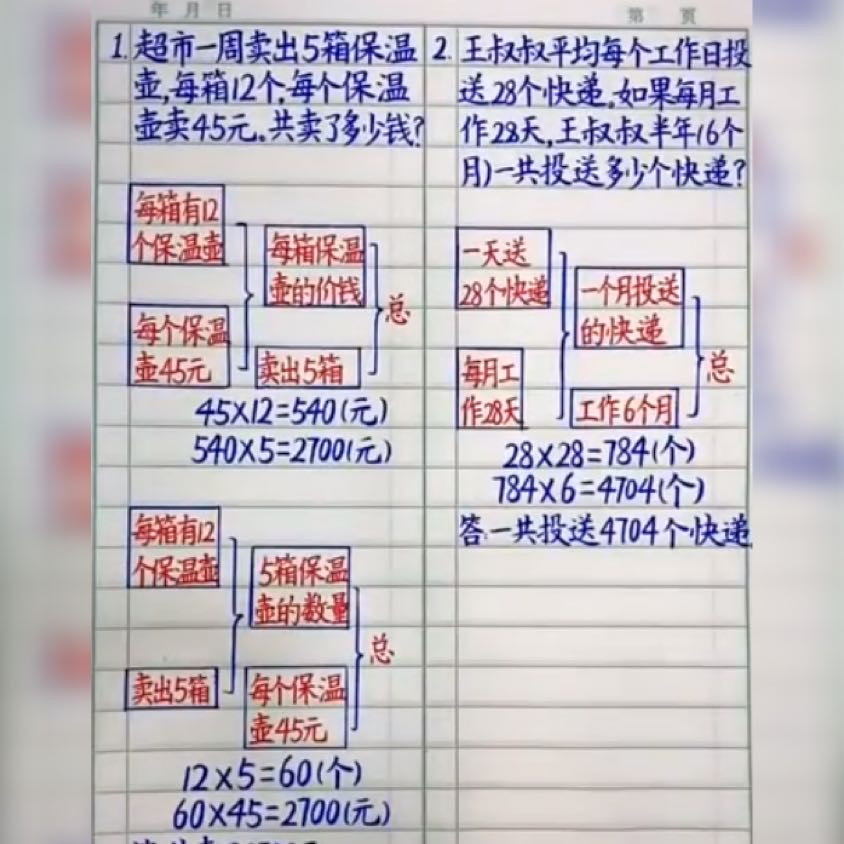 年 月 日
第 頁
1. 超市一周卖出5箱保温
壶,每箱12个,每个保温
壶卖45元。共卖了多少钱?
每箱有12
个保温壶
每箱保温
壶的价钱
总
每个保温
壶45元
卖出5箱
45×12=540(元)
540×5=2700(元)
每箱有12
个保温壶
5箱保温
壶的数量
总
卖出5箱
每个保温
壶45元
12×5=60(个)
60×45=2700(元)
2. 王叔叔平均每个工作日投
送28个快递,如果每月工
作28天,王叔叔半年(6个
月)一共投送多少个快递?
一天送
28个快递
一个月投送
的快递
总
每月工
作28天
工作6个月
28×28=784(个)
784×6=4704(个)
答:一共投送4704个快递